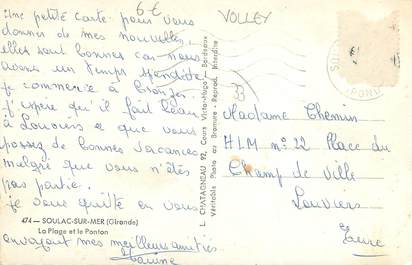 6€
VOLLEY
Une petite carte pour vous
donner de mes nouvelles,
elles sont bonnes car nous
avons un temps splendide
je commence à bronzer.
j'espère qu'il fait beau
à Louviers et que vous
passez de bonnes vacances
malgré que vous n'êtes
pas partie.
je vous quitte en vous
474 — SOULAC-SUR-MER (Gironde)
La Plage et le Ponton
envoyant mes meilleurs amitiés
L. CHATAGNEAU 92, Cours Victor-Hugo - Bordeaux
Véritable Photo au Bromure - Reprod. Interdite
33
Madame Themin
HLM n° 22 Place du
Champ de Ville
Louviers
Eure